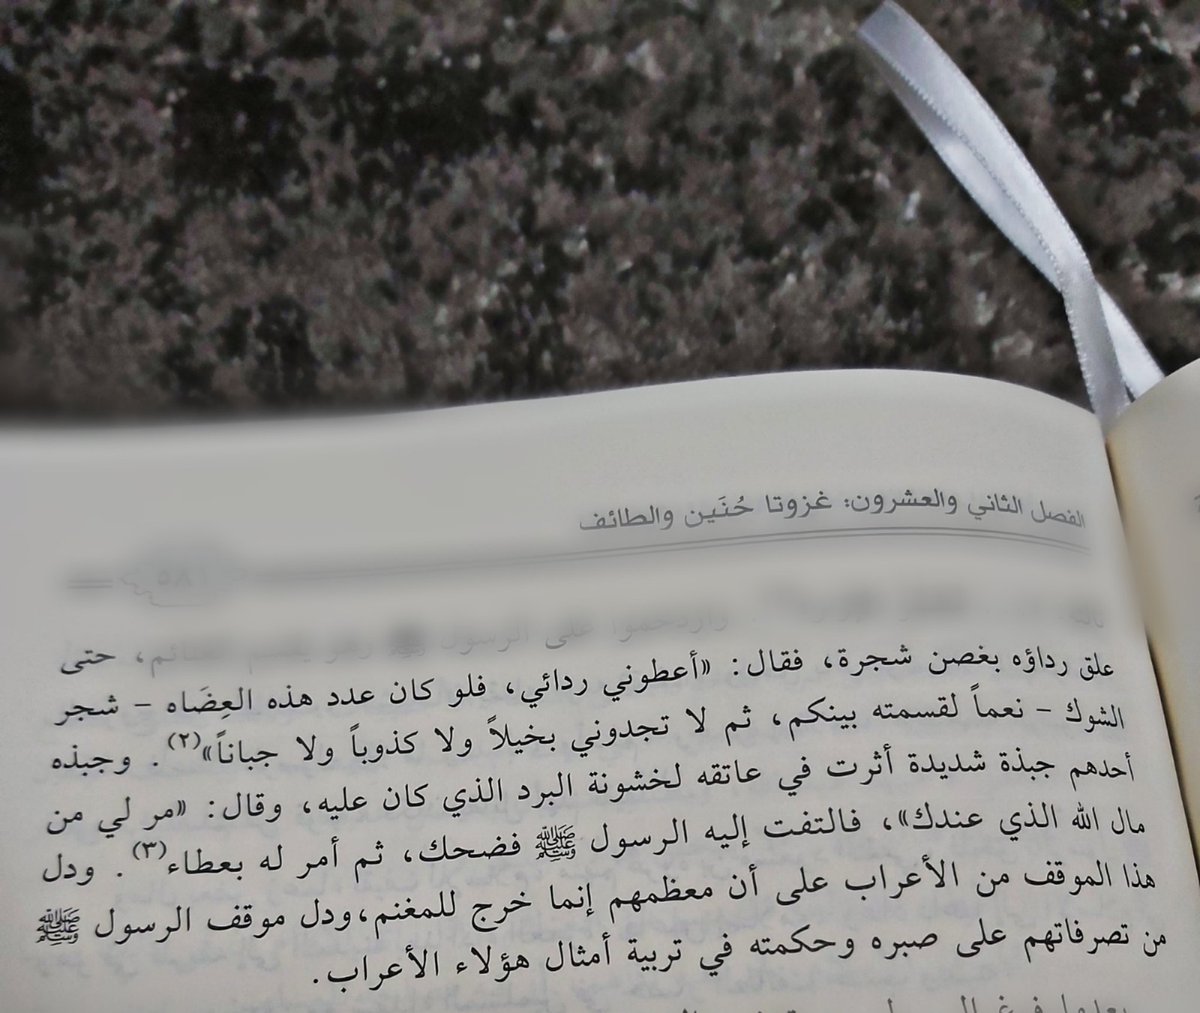 الفصل الثاني والعشرون: غزوتا حُنَين والطائف
وازدحموا على الرسول ﷺ وهو يقسم الغنائم، حتى
علق رداؤه بغصن شجرة، فقال: «أعطوني ردائي، فلو كان عدد هذه العِضَاه - شجر
الشوك - نعماً لقسمته بينكم، ثم لا تجدوني بخيلاً ولا كذوباً ولا جباناً»(٢). وجبذه
أحدهم جبذة شديدة أثرت في عاتقه لخشونة البرد الذي كان عليه، وقال: «مر لي من
مال الله الذي عندك»، فالتفت إليه الرسول ﷺ فضحك، ثم أمر له بعطاء(٣). ودل
هذا الموقف من الأعراب على أن معظمهم إنما خرج للمغنم،ودل موقف الرسول ﷺ
من تصرفاتهم على صبره وحكمته في تربية أمثال هؤلاء الأعراب.